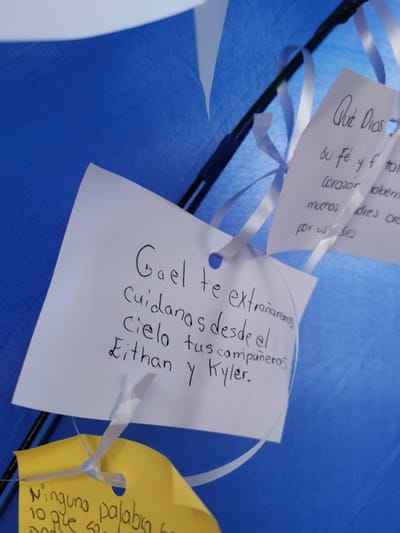 Gael te extrañaremos
cuidanos desde el
cielo tus compañeros
Eithan y Kyler.
Qué Dios
su Fé y
corazón
muchos
por ustedes
Ninguna palabra
lo que